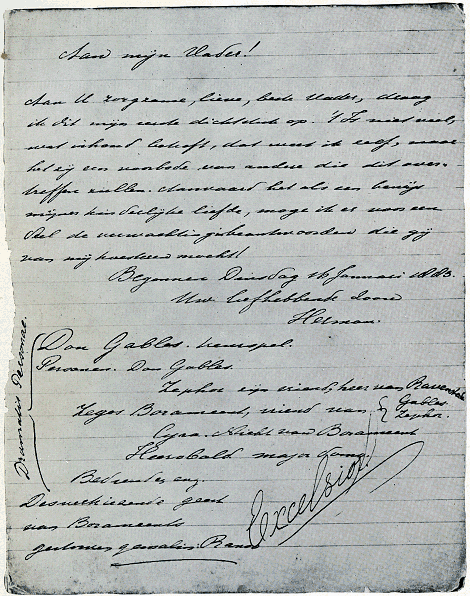 Aan mijn Vader!
Aan U zorgzame, lieve, beste Vader, draag
ik dit mijn eerste dichtstuk op. 't Is niet veel,
wat inhoud betreft, dat weet ik zelf, maar
het zij een voorbode van andere die dit over-
treffen zullen. Aanvaard het als een bewijs
mijner kinderlijke liefde, moge ik er voor een
deel de verwachting beantwoorden die gij
van mij koesteren mocht!
Begonnen Dinsdag 16 Januari 1883.
Uw liefhebbende zoon
Herman.
Dramatis Personae.
Don Gables. treurspel.
Personen. Don Gables.
Zephor zijn vriend, heer van
Zeger Borameent, vriend van { Gables. Zephor.
Cyra. Nicht van Borameent
Heerobald major domo
Bedienden enz.
De geest
van Borameents
gestorven
Excelsior!